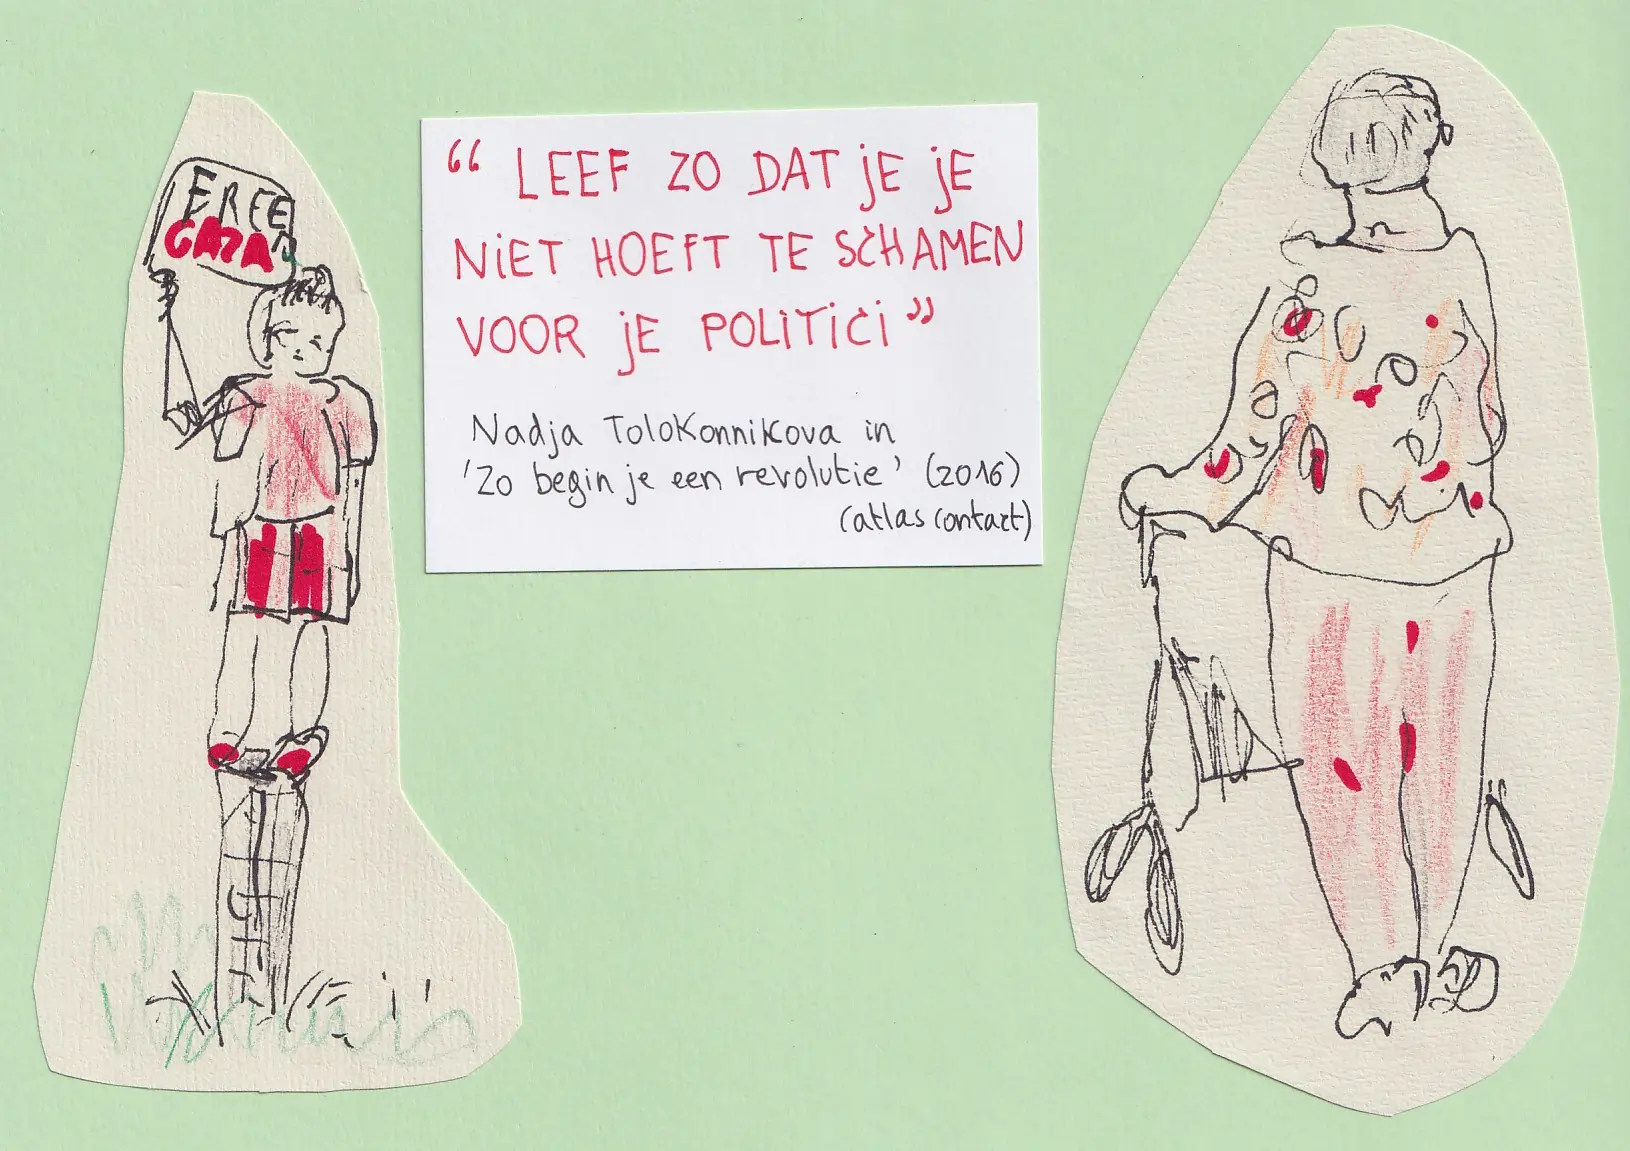 FREE
GAZA
“ LEEF ZO DAT JE JE
NIET HOEFT TE SCHAMEN
VOOR JE POLITICI ”
Nadja Tolokonnikova in
'Zo begin je een revolutie' (2016)
(atlas contact)